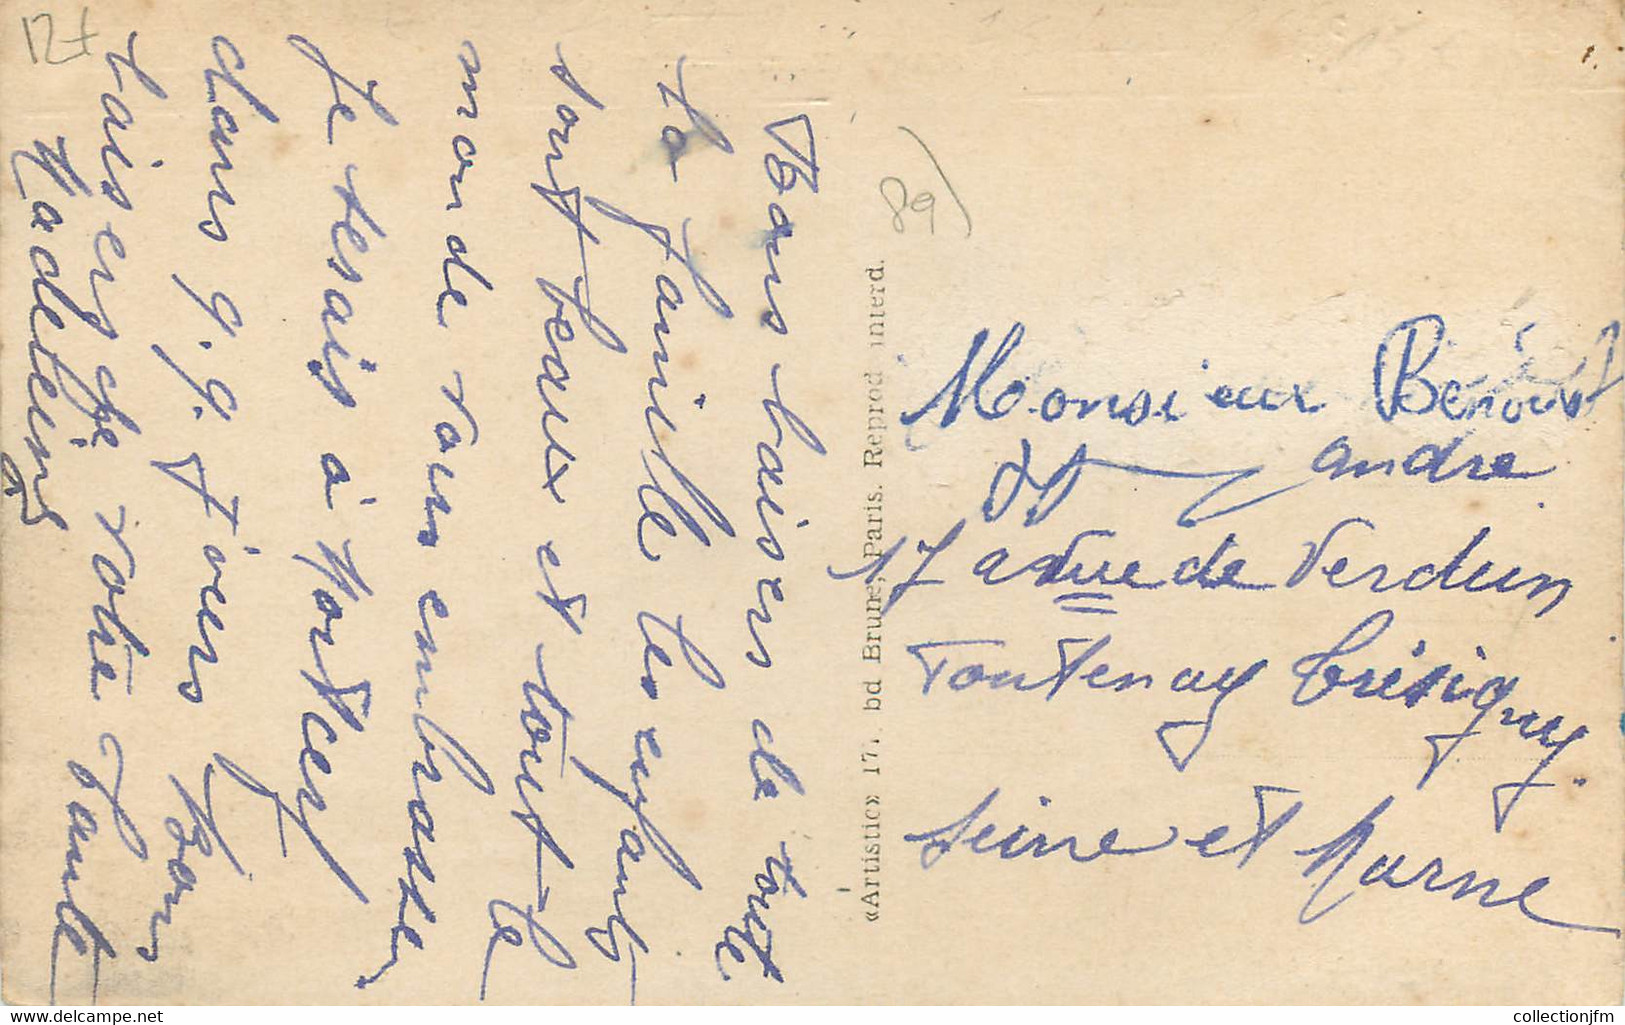 12+
Bons baisers de toute
ta famille les enfants
sont beaux et tout le
monde vous embrasse
Je tesais à Montcerf
dans 9.9. Jours Bons
baisers de votre Tante
Madeleine
89)
«Artistic» 17, bd Brune, Paris. Reprod interd.
Monsieur Benoist
andre
17 avnue de Verdun
Fontenay Trésigny
Seine et Marne
collectionjfm